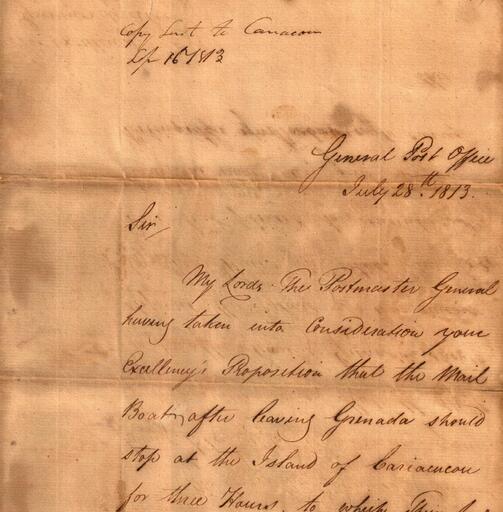 Copy Sent to Cariacou
Sep 16 1813
General Post Office
July 28th. 1813.
Sir/
My Lords The Postmaster General
having taken into Consideration your
Excellency's Proposition that the Mail
Boat, after leaving Grenada should
stop at the Island of Cariacucou
for three Hours, to which Their